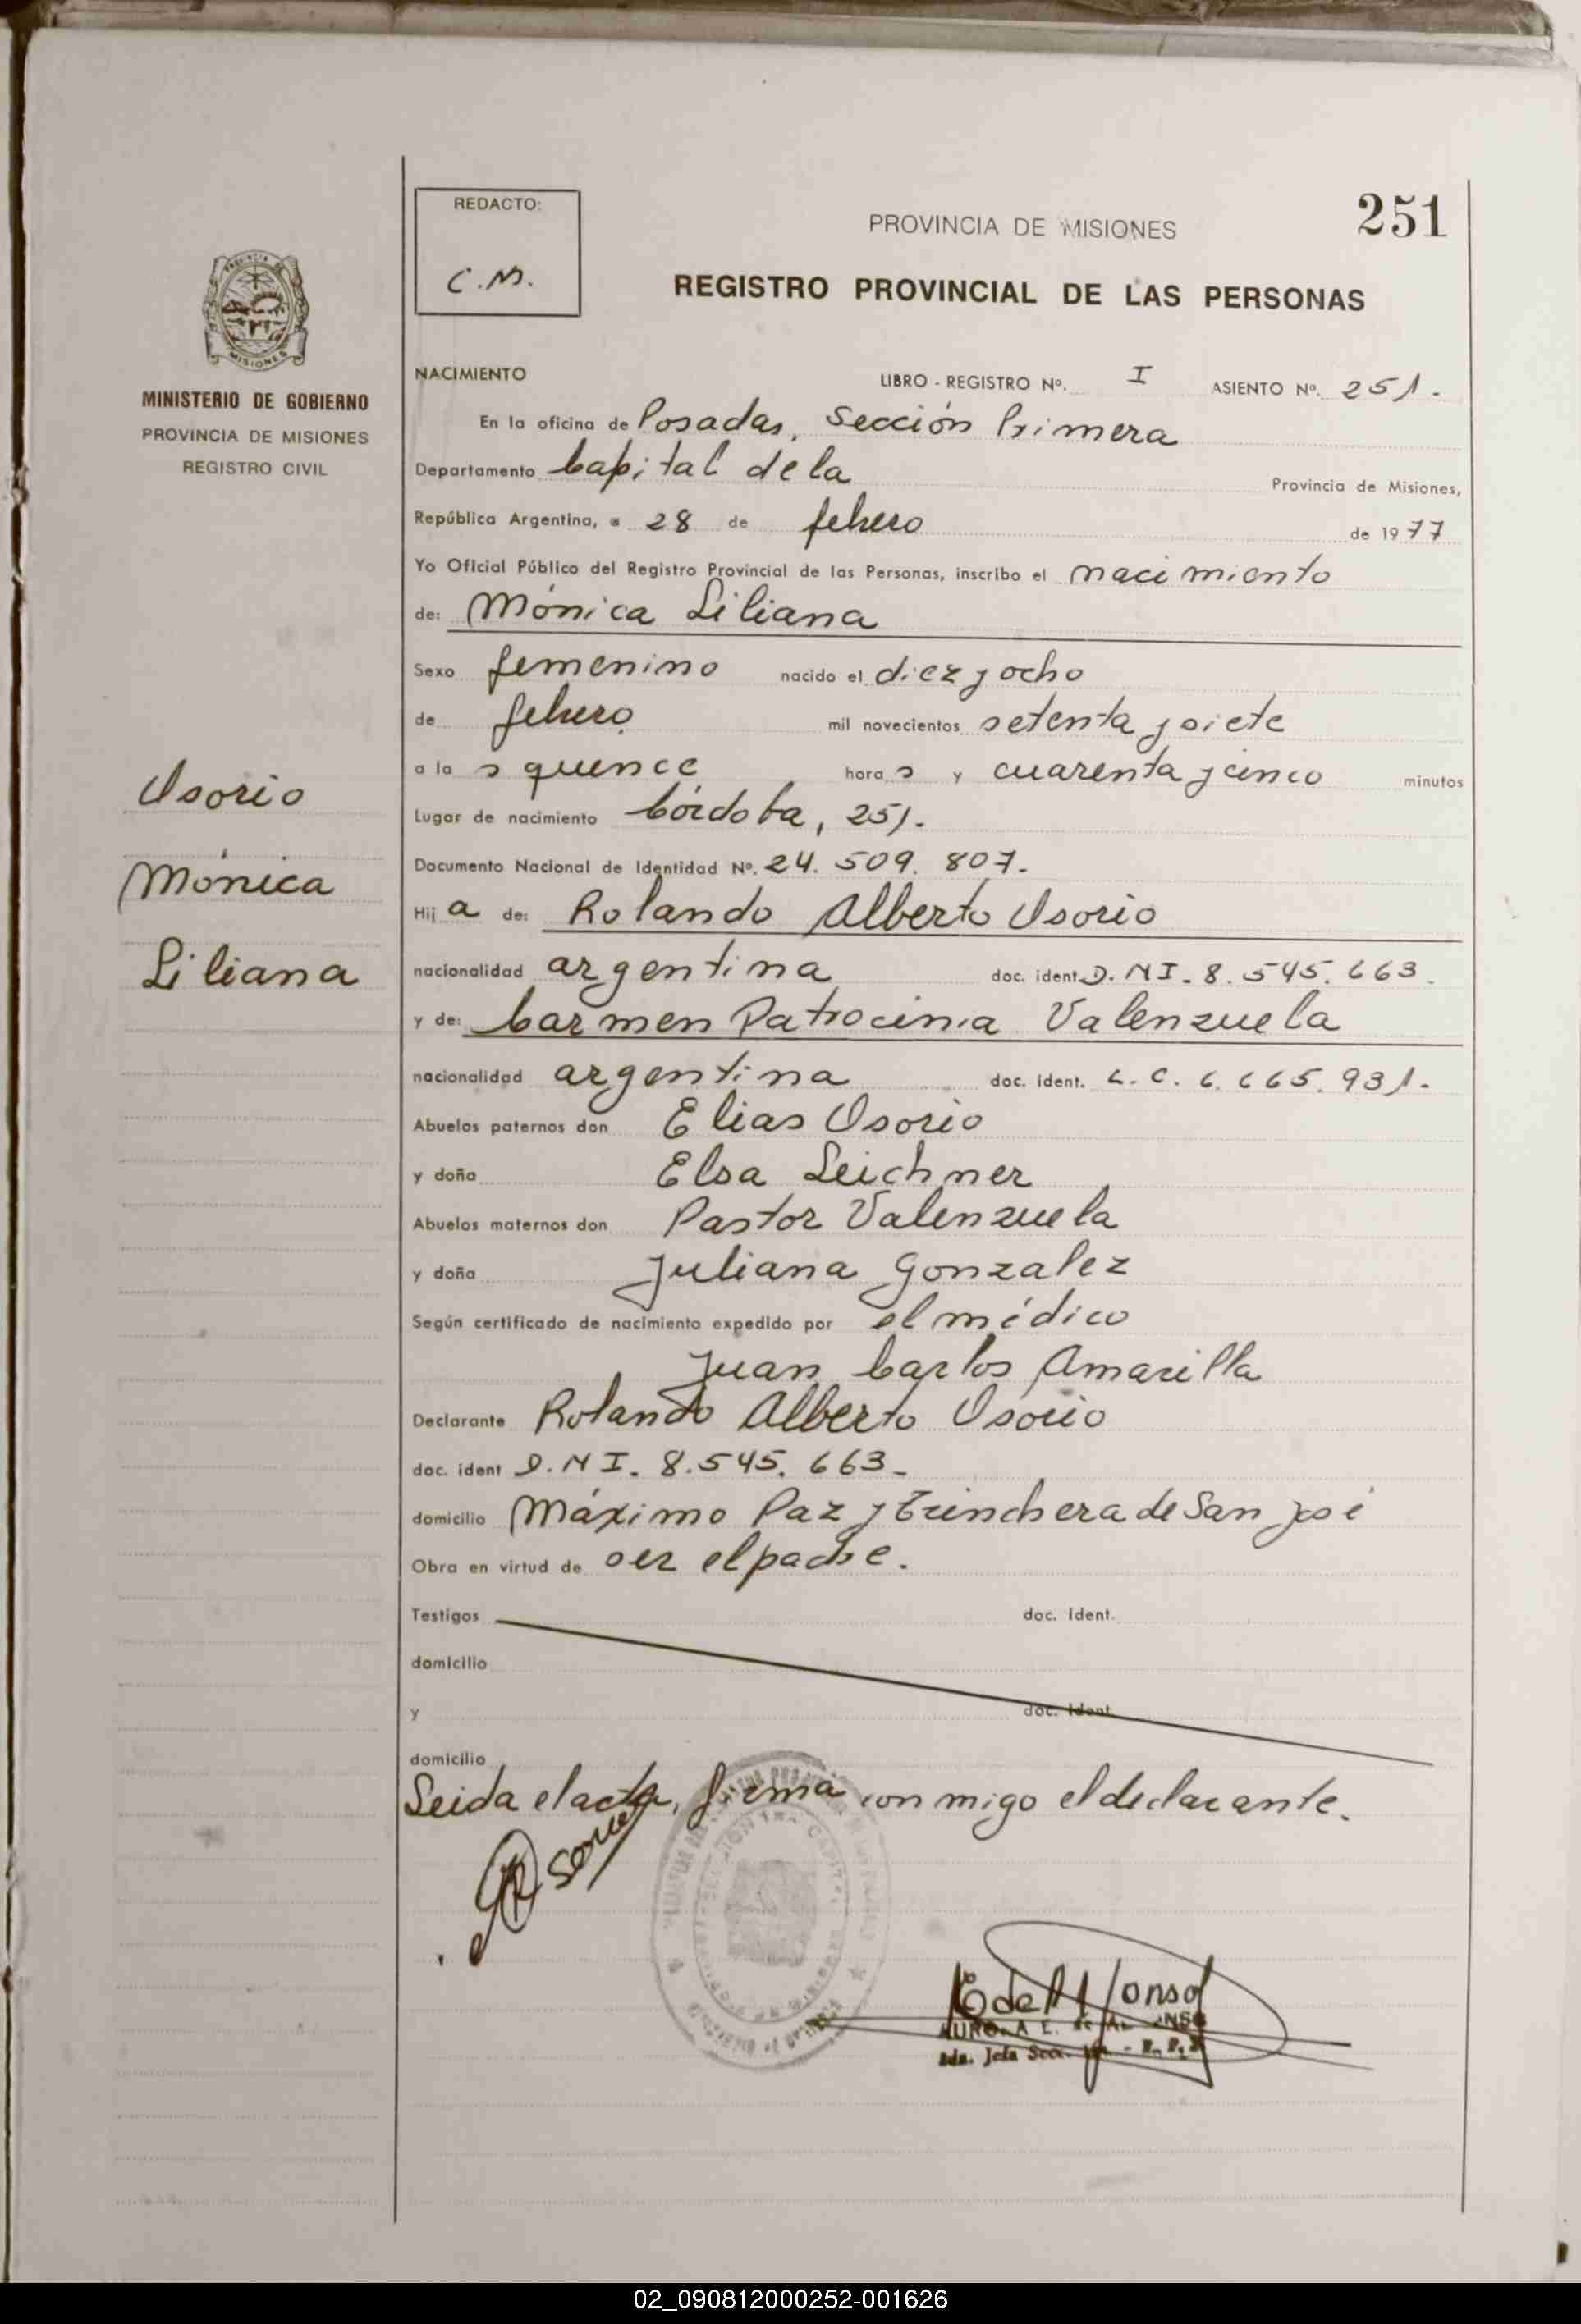 REDACTO:
C.M.
PROVINCIA DE MISIONES
251
REGISTRO PROVINCIAL DE LAS PERSONAS
MISIONES
MINISTERIO DE GOBIERNO
PROVINCIA DE MISIONES
REGISTRO CIVIL
NACIMIENTO LIBRO - REGISTRO Nº. I ASIENTO Nº. 251.
En la oficina de Posadas, Sección Primera
Departamento Capital de la Provincia de Misiones,
República Argentina, a 28 de febrero de 1977
Yo Oficial Público del Registro Provincial de las Personas, inscribo el nacimiento
de: Mónica Liliana
Sexo femenino nacido el diez y ocho
de febrero mil novecientos setenta y siete
a la s quince hora s y cuarenta y cinco minutos
Lugar de nacimiento Córdoba, 251.
Documento Nacional de Identidad Nº. 24.509.807.
Hij a de: Rolando Alberto Osorio
nacionalidad argentina doc. ident. D.NI. 8.545.663.
y de: Carmen Patrocinia Valenzuela
nacionalidad argentina doc. ident. L.C. 6.665.931.
Abuelos paternos don Elias Osorio
y doña Elsa Leichner
Abuelos maternos don Pastor Valenzuela
y doña Juliana Gonzalez
Según certificado de nacimiento expedido por el médico
Juan Carlos Amarilla
Declarante Rolando Alberto Osorio
doc. ident D.NI. 8.545.663.
domicilio Máximo Paz y Trinchera de San José
Obra en virtud de ser el padre.
Testigos doc. ident.
domicilio
y doc. ident
domicilio
Leida el acta, firma conmigo el declarante.
Osorio
Mónica
Liliana
02_090812000252-001626